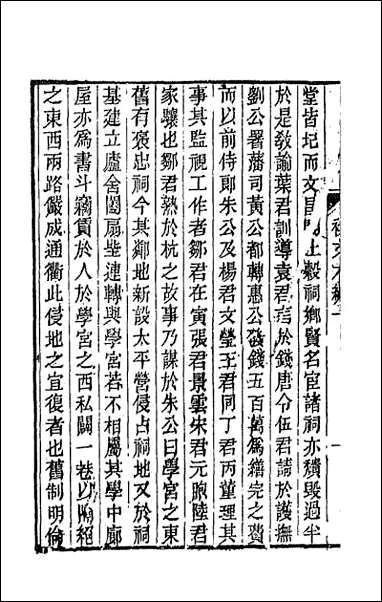 堂皆圮而文昌閣土穀祠鄉賢名宦諸祠亦穨毀過半
於是教諭葉君訓導袁君言於錢唐令伍君請於護撫
劉公署藩司黃公都轉惠公發錢五百萬爲繕完之費
而以前侍郎朱公及楊君文瑩王君同丁君丙董理其
事其監視工作者鄒君在寅張君景雲朱君元煦陸君
家驤也鄒君熟於杭之故事乃謀於朱公曰學宮之東
舊有褒忠祠今其鄰地新設太平營侵占祠地又於祠
基建立廬舍闔扇坒連轉與學宮若不相屬其學中廊
屋亦爲書斗竊賃於人於學宮之西私闢一巷以隔絕
之東西兩路儼成通衢此侵地之宜復者也舊制明倫